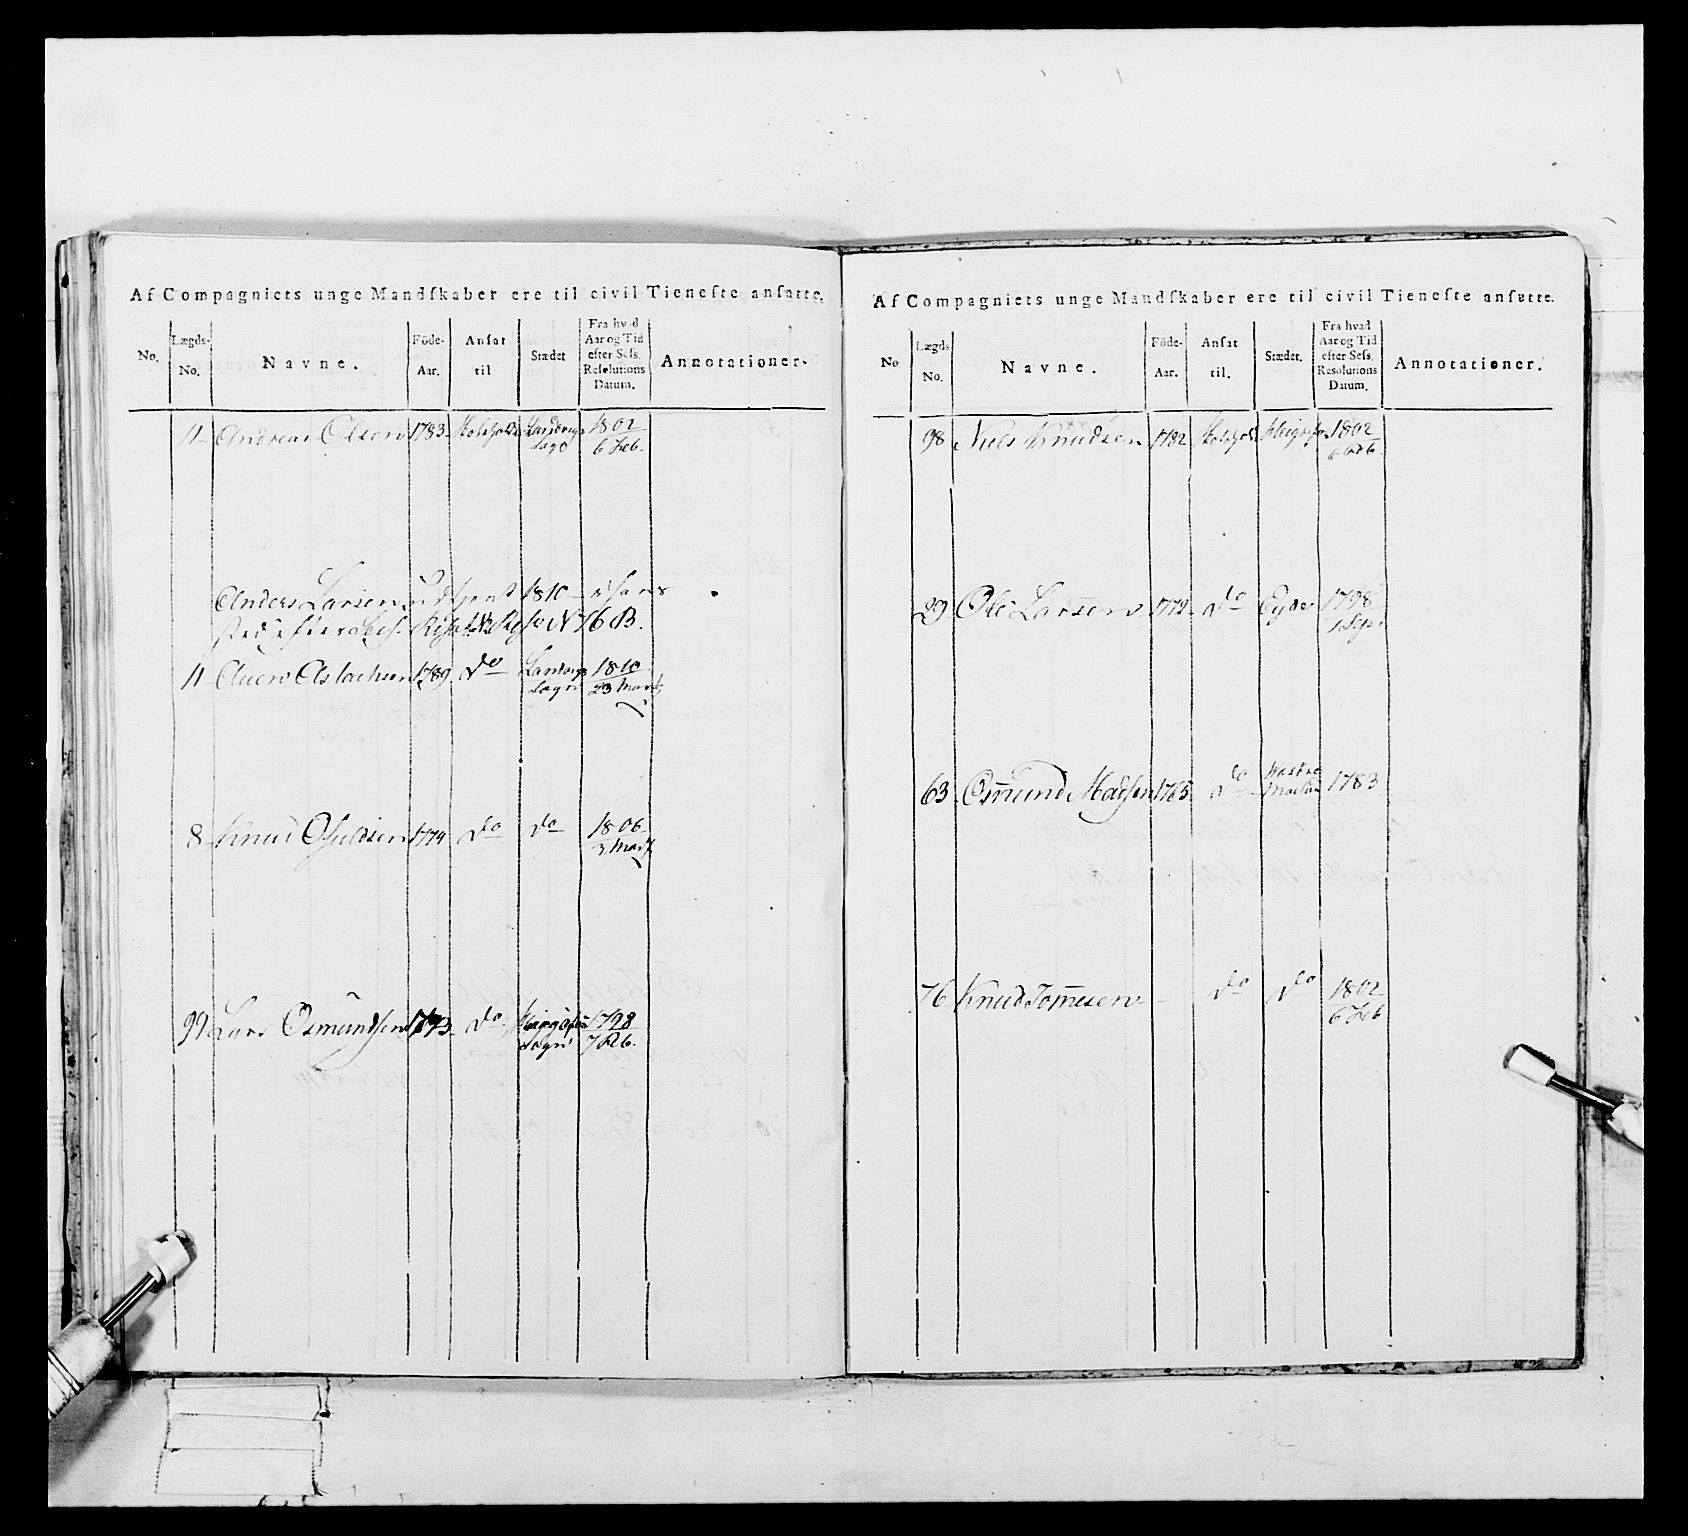 Af Compagniets unge Mandſkaber ere til civil Tieneſte anſatte.
No. Lægds-No. Navne. Föde-Aar. Anſat til Stædet Fra hvad Aar og Tid efter Seſs. Reſolutions Datum. Annotationer.
11 Andreas Olsen 1783 Skoleholder Landvigs Sogn 1802 6 Feb.
Anders Larsen udtient 1810
sted efter Sess. N 76 B.
11 Auen Aslachsen 1789 do Landvigs Sogn 1810 23 Martz
8 Knud Osuldsen 1774 do do 1806 3 Martz
99 Lars Osmundsen 1773 do Sogn 1798 7 Feb.
Af Compagniets unge Mandſkaber ere til civil Tieneſte anſatte.
No Lægds No. Navne. Föde-Aar. Anſat til. Stædet. Fra hvad Aar og Tid efter Seſs. Resolutions Datum. Annotationer.
98 Niels Knudsen 1782 Skoleh. 1802 6 Feb
29 Ole Larsen 1772 do Eyde 1798 1 Sept
63 Osmund Madsen 1765 do 1783
76 Knud Tom̅esen do do 1802 6 Feb